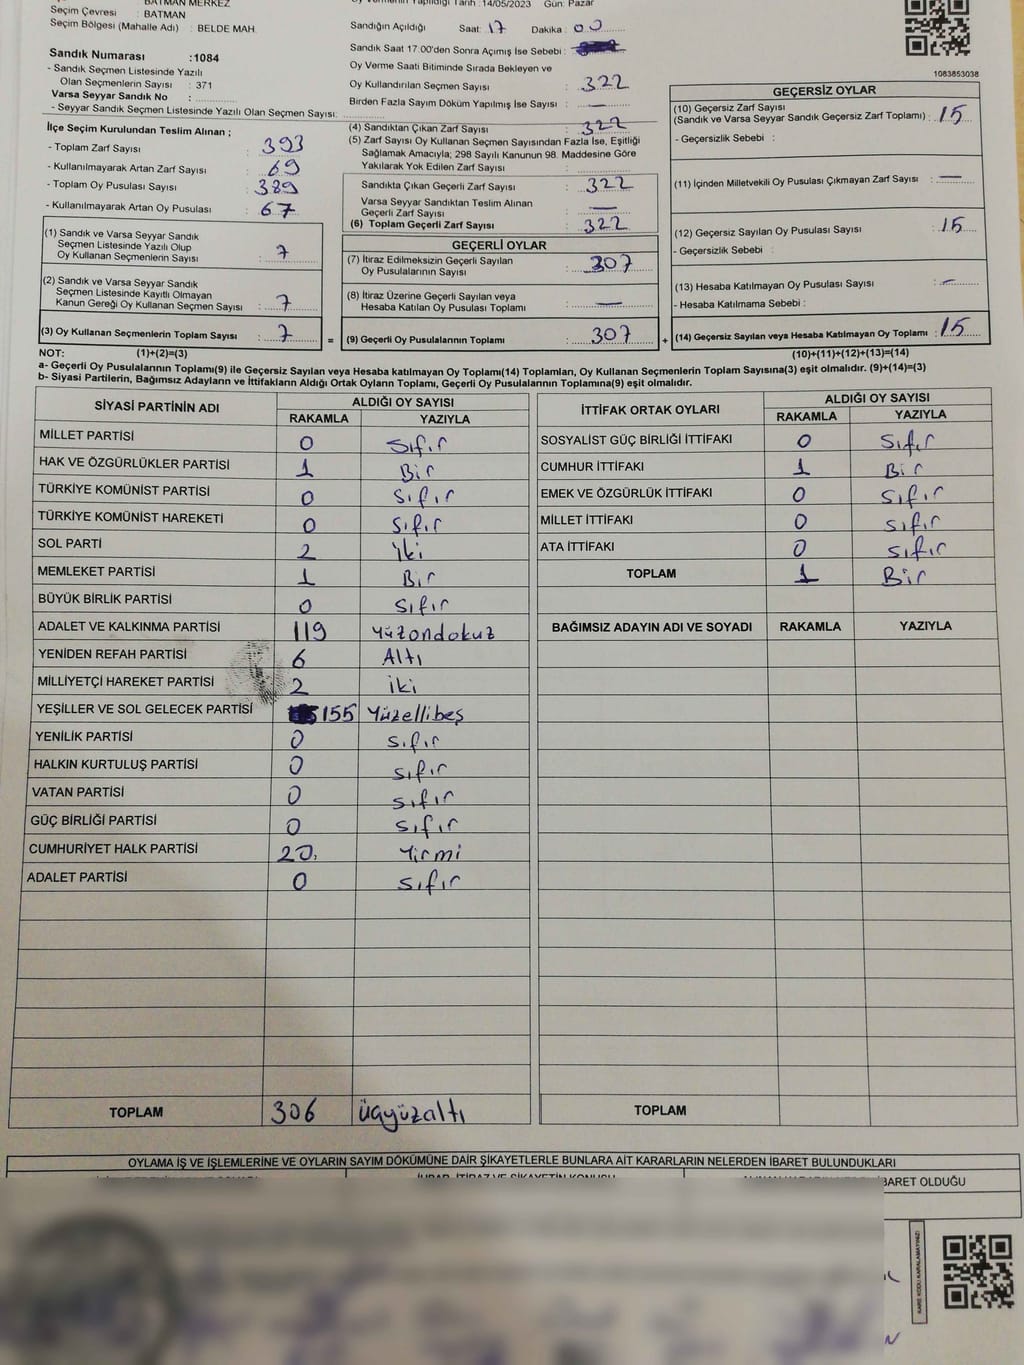 BATMAN MERKEZ
Seçim Çevresi : BATMAN
Seçim Bölgesi (Mahalle Adı) : BELDE MAH
Sandık Numarası :1084
- Sandık Seçmen Listesinde Yazılı
Olan Seçmenlerin Sayısı : 371
Varsa Seyyar Sandık No :
- Seyyar Sandık Seçmen Listesinde Yazılı Olan Seçmen Sayısı:
Oy Vermenin Yapıldığı Tarih :14/05/2023 Gün: Pazar
Sandığın Açıldığı Saat: 17 Dakika : 00
Sandık Saat 17:00'den Sonra Açımış İse Sebebi :
Oy Verme Saati Bitiminde Sırada Bekleyen ve
Oy Kullandırılan Seçmen Sayısı : 322
Birden Fazla Sayım Döküm Yapılmış İse Sayısı : —
1083853038
İlçe Seçim Kurulundan Teslim Alınan ;
- Toplam Zarf Sayısı : 393
- Kullanılmayarak Artan Zarf Sayısı : 69
- Toplam Oy Pusulası Sayısı : 389
- Kullanılmayarak Artan Oy Pusulası : 67
(1) Sandık ve Varsa Seyyar Sandık
Seçmen Listesinde Yazılı Olup
Oy Kullanan Seçmenlerin Sayısı : 7
(2) Sandık ve Varsa Seyyar Sandık
Seçmen Listesinde Kayıtlı Olmayan
Kanun Gereği Oy Kullanan Seçmen Sayısı : 7
(3) Oy Kullanan Seçmenlerin Toplam Sayısı : 7 =
(4) Sandıktan Çıkan Zarf Sayısı : 322
(5) Zarf Sayısı Oy Kullanan Seçmen Sayısından Fazla İse, Eşitliği
Sağlamak Amacıyla; 298 Sayılı Kanunun 98. Maddesine Göre
Yakılarak Yok Edilen Zarf Sayısı :
Sandıkta Çıkan Geçerli Zarf Sayısı : 322
Varsa Seyyar Sandıktan Teslim Alınan
Geçerli Zarf Sayısı : —
(6) Toplam Geçerli Zarf Sayısı : 322
GEÇERLİ OYLAR
(7) İtiraz Edilmeksizin Geçerli Sayılan
Oy Pusulalarının Sayısı : 307
(8) İtiraz Üzerine Geçerli Sayılan veya
Hesaba Katılan Oy Pusulası Toplamı : —
(9) Geçerli Oy Pusulalarının Toplamı : 307 +
GEÇERSİZ OYLAR
(10) Geçersiz Zarf Sayısı
(Sandık ve Varsa Seyyar Sandık Geçersiz Zarf Toplamı) : 15
- Geçersizlik Sebebi :
(11) İçinden Milletvekili Oy Pusulası Çıkmayan Zarf Sayısı : —
(12) Geçersiz Sayılan Oy Pusulası Sayısı : 15
- Geçersizlik Sebebi :
(13) Hesaba Katılmayan Oy Pusulası Sayısı : —
- Hesaba Katılmama Sebebi :
(14) Geçersiz Sayılan veya Hesaba Katılmayan Oy Toplamı : 15
NOT: (1)+(2)=(3) (10)+(11)+(12)+(13)=(14)
a- Geçerli Oy Pusulalarının Toplamı(9) ile Geçersiz Sayılan veya Hesaba katılmayan Oy Toplamı(14) Toplamları, Oy Kullanan Seçmenlerin Toplam Sayısına(3) eşit olmalıdır. (9)+(14)=(3)
b- Siyasi Partilerin, Bağımsız Adayların ve İttifakların Aldığı Ortak Oyların Toplamı, Geçerli Oy Pusulalarının Toplamına(9) eşit olmalıdır.
SİYASİ PARTİNİN ADI ALDIĞI OY SAYISI
RAKAMLA YAZIYLA
MİLLET PARTİSİ 0 Sıfır
HAK VE ÖZGÜRLÜKLER PARTİSİ 1 Bir
TÜRKİYE KOMÜNİST PARTİSİ 0 Sıfır
TÜRKİYE KOMÜNİST HAREKETİ 0 Sıfır
SOL PARTİ 2 iki
MEMLEKET PARTİSİ 1 Bir
BÜYÜK BİRLİK PARTİSİ 0 Sıfır
ADALET VE KALKINMA PARTİSİ 119 Yüzondokuz
YENİDEN REFAH PARTİSİ 6 Altı
MİLLİYETÇİ HAREKET PARTİSİ 2 iki
YEŞİLLER VE SOL GELECEK PARTİSİ 155 Yüzellibeş
YENİLİK PARTİSİ 0 sıfır
HALKIN KURTULUŞ PARTİSİ 0 sıfır
VATAN PARTİSİ 0 sıfır
GÜÇ BİRLİĞİ PARTİSİ 0 sıfır
CUMHURİYET HALK PARTİSİ 20 Yirmi
ADALET PARTİSİ 0 sıfır
TOPLAM 306 üçyüzaltı
İTTİFAK ORTAK OYLARI ALDIĞI OY SAYISI
RAKAMLA YAZIYLA
SOSYALİST GÜÇ BİRLİĞİ İTTİFAKI 0 Sıfır
CUMHUR İTTİFAKI 1 Bir
EMEK VE ÖZGÜRLÜK İTTİFAKI 0 Sıfır
MİLLET İTTİFAKI 0 sıfır
ATA İTTİFAKI 0 sıfır
TOPLAM 1 Bir
BAĞIMSIZ ADAYIN ADI VE SOYADI RAKAMLA YAZIYLA
TOPLAM
OYLAMA İŞ VE İŞLEMLERİNE VE OYLARIN SAYIM DÖKÜMÜNE DAİR ŞİKAYETLERLE BUNLARA AİT KARARLARIN NELERDEN İBARET BULUNDUKLARI
İBARET OLDUĞU
KARE KODU KARALAMAYINIZ!